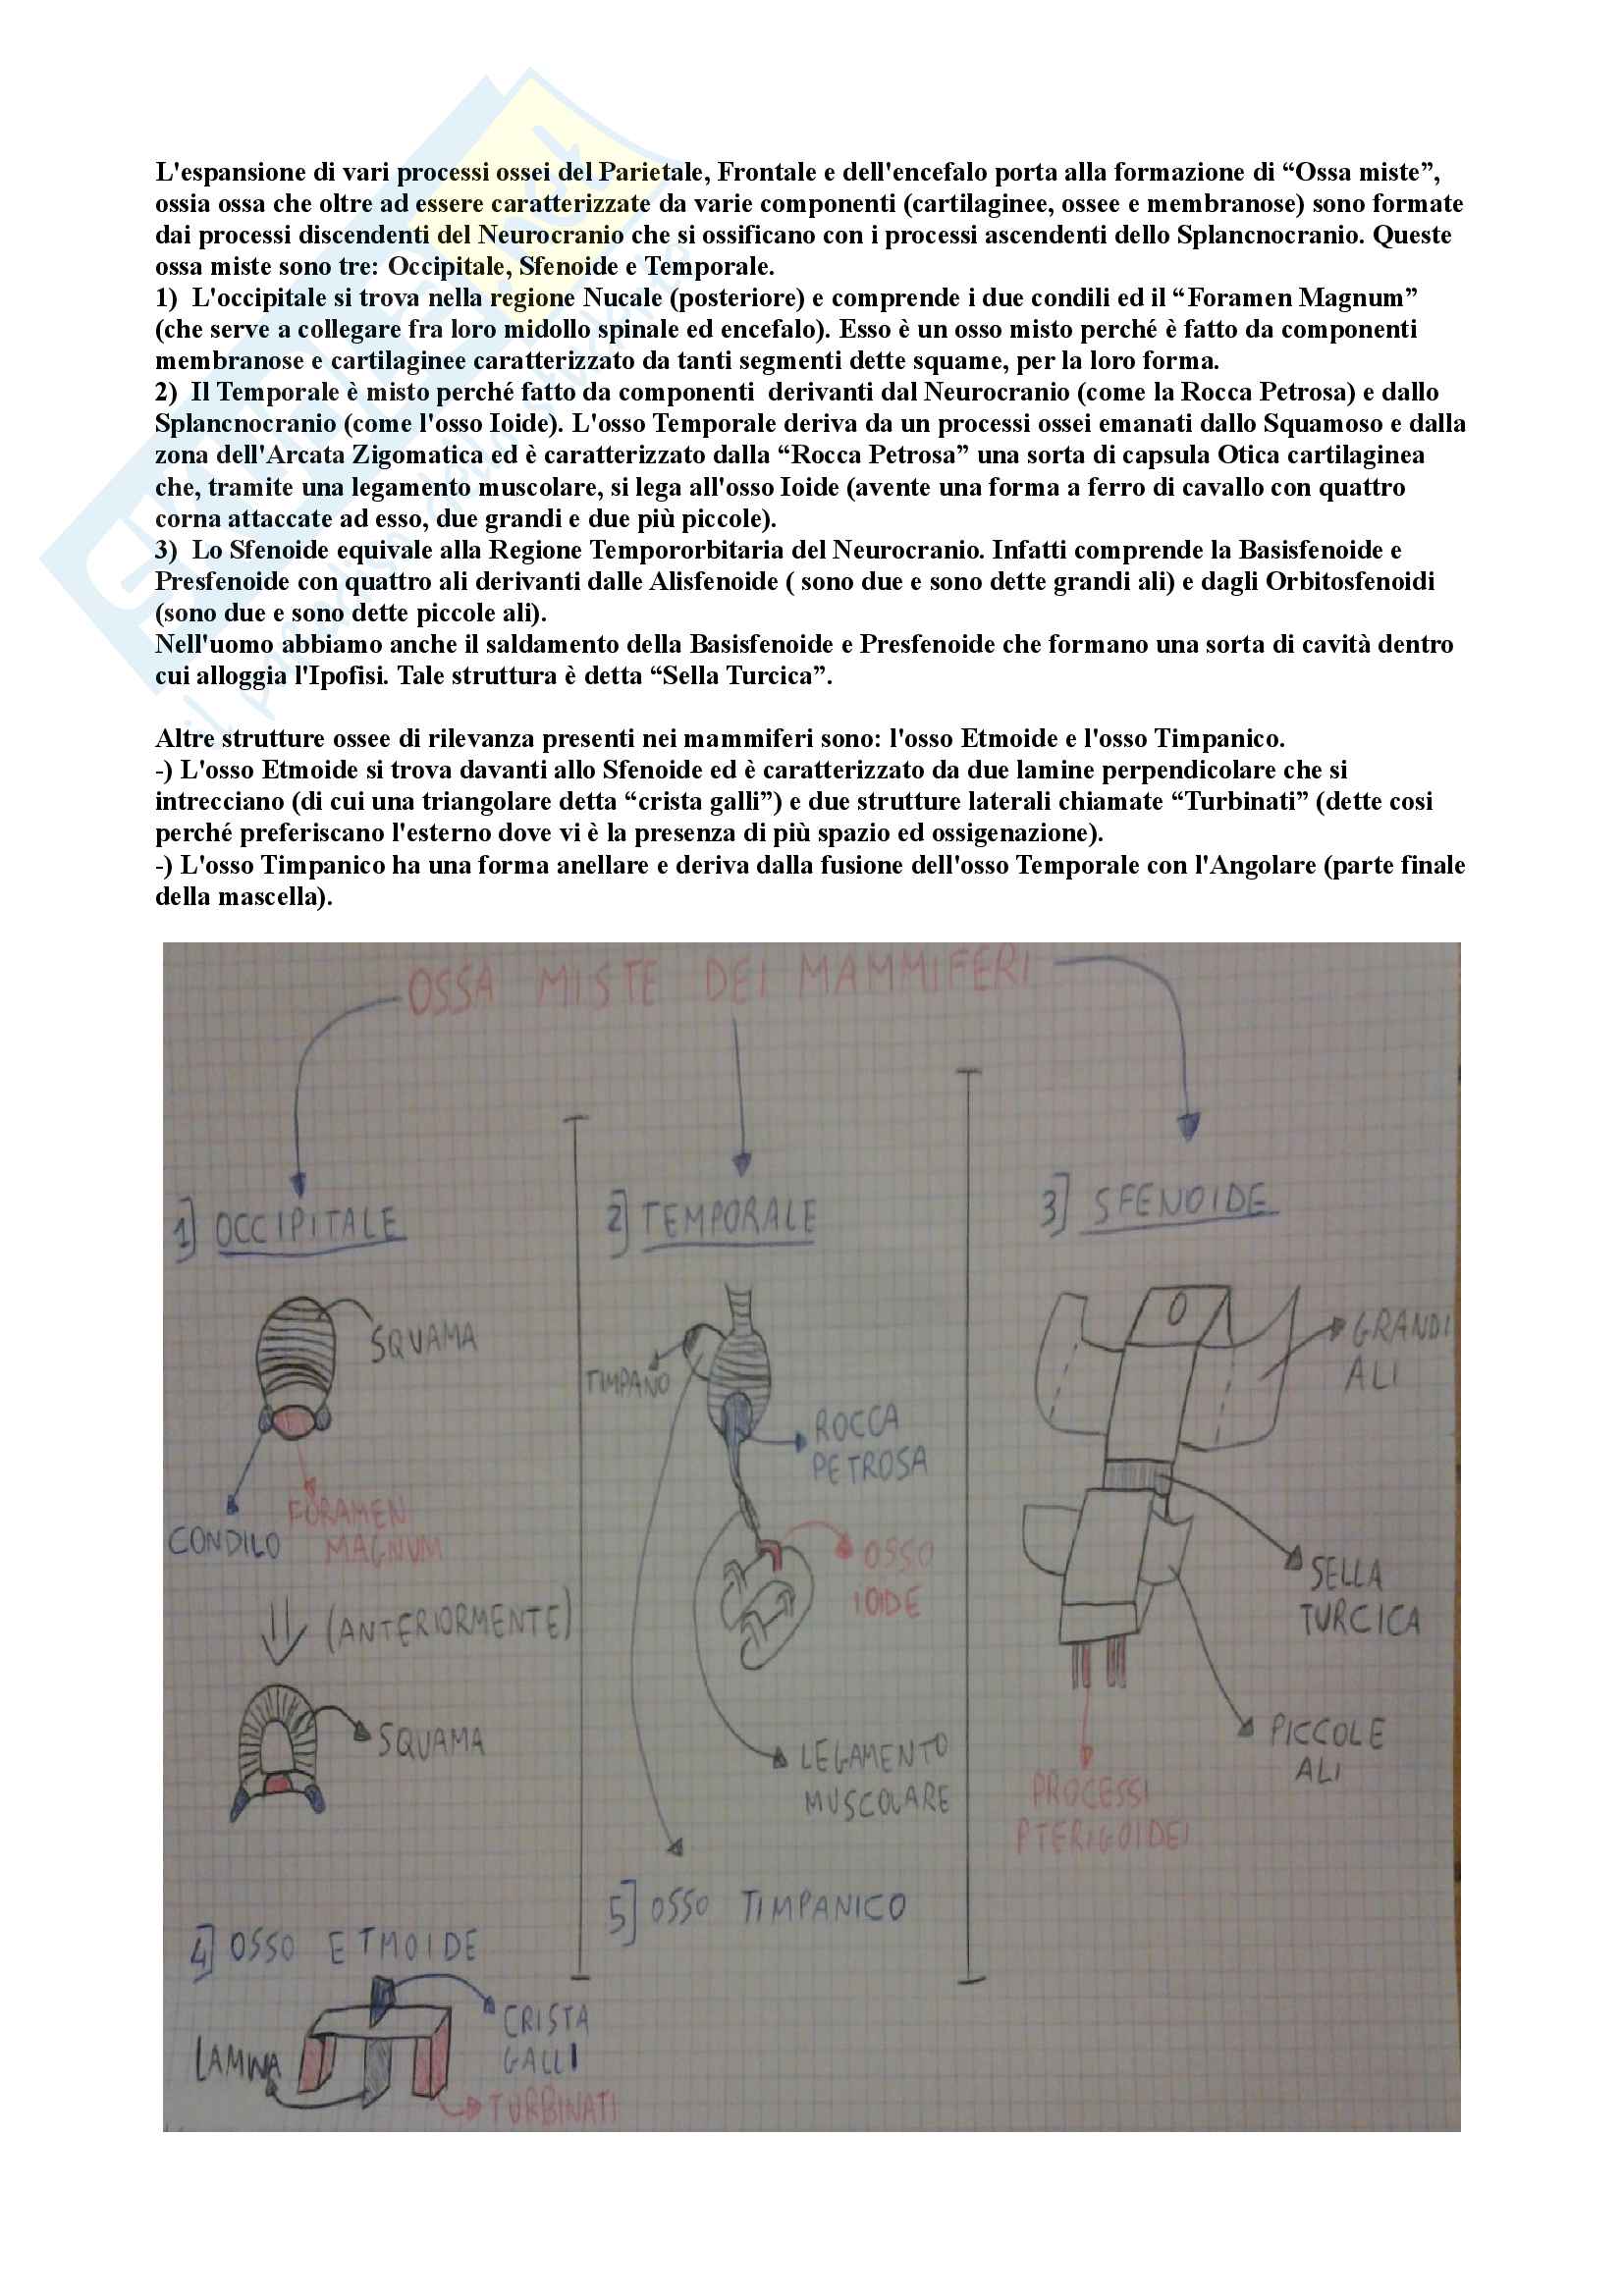 L'espansione di vari processi ossei del Parietale, Frontale e dell'encefalo porta alla formazione di “Ossa miste”,
ossia ossa che oltre ad essere caratterizzate da varie componenti (cartilaginee, ossee e membranose) sono formate
dai processi discendenti del Neurocranio che si ossificano con i processi ascendenti dello Splancnocranio. Queste
ossa miste sono tre: Occipitale, Sfenoide e Temporale.
1)  L'occipitale si trova nella regione Nucale (posteriore) e comprende i due condili ed il “Foramen Magnum”
(che serve a collegare fra loro midollo spinale ed encefalo). Esso è un osso misto perché è fatto da componenti
membranose e cartilaginee caratterizzato da tanti segmenti dette squame, per la loro forma.
2)  Il Temporale è misto perché fatto da componenti  derivanti dal Neurocranio (come la Rocca Petrosa) e dallo
Splancnocranio (come l'osso Ioide). L'osso Temporale deriva da un processi ossei emanati dallo Squamoso e dalla
zona dell'Arcata Zigomatica ed è caratterizzato dalla “Rocca Petrosa” una sorta di capsula Otica cartilaginea
che, tramite una legamento muscolare, si lega all'osso Ioide (avente una forma a ferro di cavallo con quattro
corna attaccate ad esso, due grandi e due più piccole).
3)  Lo Sfenoide equivale alla Regione Tempororbitaria del Neurocranio. Infatti comprende la Basisfenoide e
Presfenoide con quattro ali derivanti dalle Alisfenoide ( sono due e sono dette grandi ali) e dagli Orbitosfenoidi
(sono due e sono dette piccole ali).
Nell'uomo abbiamo anche il saldamento della Basisfenoide e Presfenoide che formano una sorta di cavità dentro
cui alloggia l'Ipofisi. Tale struttura è detta “Sella Turcica”.
Altre strutture ossee di rilevanza presenti nei mammiferi sono: l'osso Etmoide e l'osso Timpanico.
-) L'osso Etmoide si trova davanti allo Sfenoide ed è caratterizzato da due lamine perpendicolare che si
intrecciano (di cui una triangolare detta “crista galli”) e due strutture laterali chiamate “Turbinati” (dette cosi
perché preferiscano l'esterno dove vi è la presenza di più spazio ed ossigenazione).
-) L'osso Timpanico ha una forma anellare e deriva dalla fusione dell'osso Temporale con l'Angolare (parte finale
della mascella).
OSSA MISTE DEI MAMMIFERI
1] OCCIPITALE
SQUAMA
CONDILO
FORAMEN
MAGNUM
(ANTERIORMENTE)
SQUAMA
2] TEMPORALE
TIMPANO
ROCCA
PETROSA
OSSO
IOIDE
LEGAMENTO
MUSCOLARE
3] SFENOIDE
GRANDI
ALI
SELLA
TURCICA
PICCOLE
ALI
PROCESSI
PTERIGOIDEI
4] OSSO ETMOIDE
CRISTA
GALLI
LAMINA
TURBINATI
5] OSSO TIMPANICO